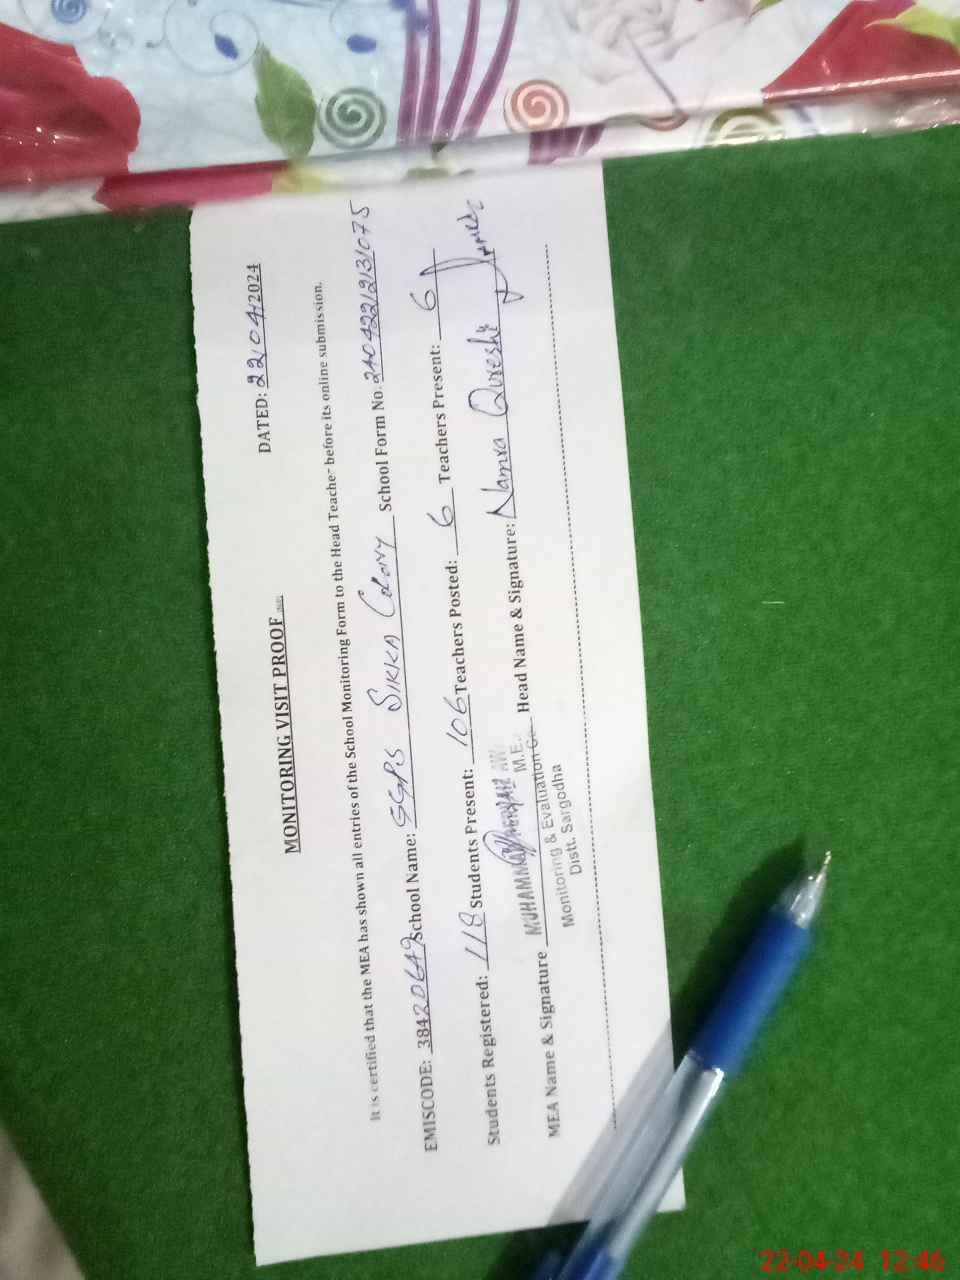 DATED: 22/04/2024
MONITORING VISIT PROOF
It is certified that the MEA has shown all entries of the School Monitoring Form to the Head Teache- before its online submission.
EMISCODE: 38420649 School Name: GGPS SIKKA Colony School Form No. 240422/2/31075
Students Registered: 118 Students Present: 106 Teachers Posted: 6 Teachers Present: 6
MEA Name & Signature MUHAMMAD M.E. Head Name & Signature: Namra Qureshi
Monitoring & Evaluation
Distt. Sargodha
22-04-24 12:46